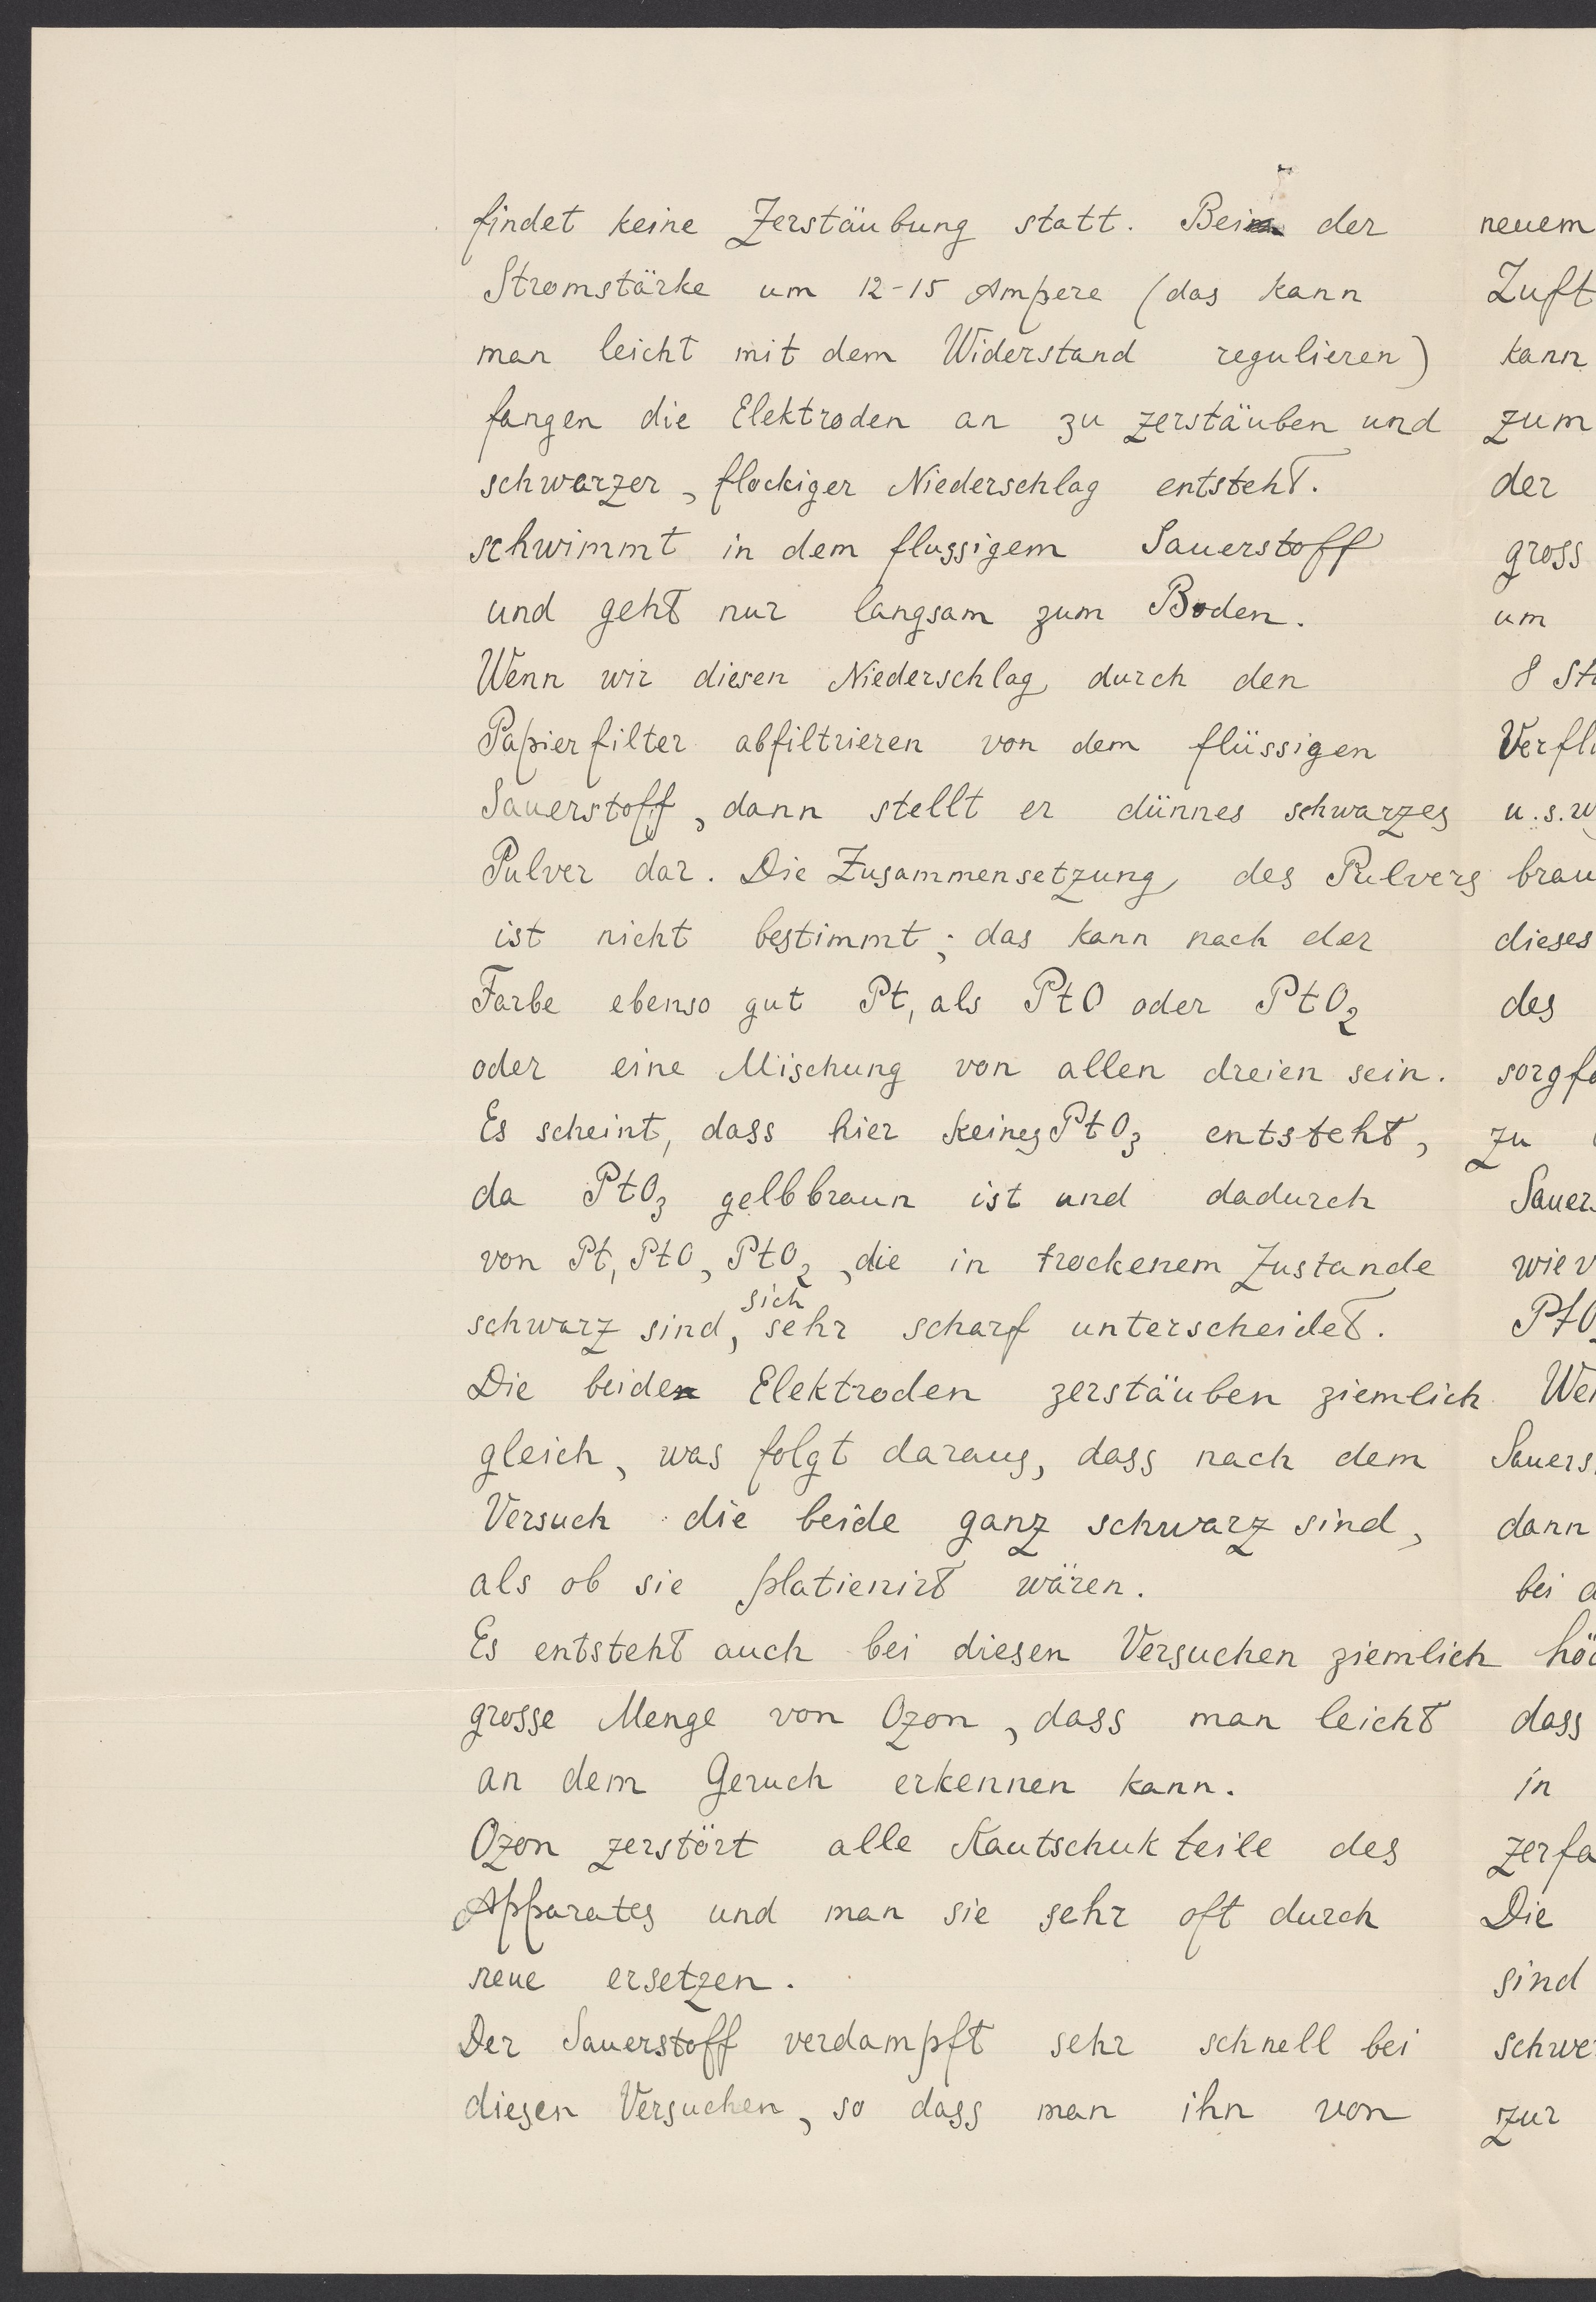 findet keine Zerstäubung statt. Bei der
Stromstärke um 12-15 Ampere (das kann
man leicht mit dem Widerstand regulieren)
fangen die Elektroden an zu zerstäuben und
schwarzer, flockiger Niederschlag entsteht.
schwimmt in dem flussigem Sauerstoff
und geht nur langsam zum Boden.
Wenn wir diesen Niederschlag durch den
Papierfilter abfiltrieren von dem flüssigen
Sauerstoff, dann stellt er dünnes schwarzes
Pulver dar. Die Zusammensetzung des Pulvers
ist nicht bestimmt; das kann nach der
Farbe ebenso gut Pt, als PtO oder PtO₂
oder eine Mischung von allen dreien sein.
Es scheint, dass hier keines PtO₃ entsteht,
da PtO₃ gelbbraun ist und dadurch
von Pt, PtO, PtO₂, die in trockenem Zustande
schwarz sind, sich sehr scharf unterscheidet.
Die beide Elektroden zerstäuben ziemlich
gleich, was folgt daraus, dass nach dem
Versuch die beide ganz schwarz sind,
als ob sie platienirt wären.
Es entsteht auch bei diesen Versuchen ziemlich
grosse Menge von Ozon, dass man leicht
an dem Geruch erkennen kann.
Ozon zerstört alle Kautschukteile des
Apparates und man sie sehr oft durch
neue ersetzen.
Der Sauerstoff verdampft sehr schnell bei
diesen Versuchen, so dass man ihn von
neuem
Luft
kann
zum
der
gross
um
8 St
Verfl
u.s.w
brau
dieses
des
sorgfä
zu
Sauer
wiev
PtO
We
Sauers
dann
bei
hö
dass
in
zerfa
Die
sind
schwe
zur